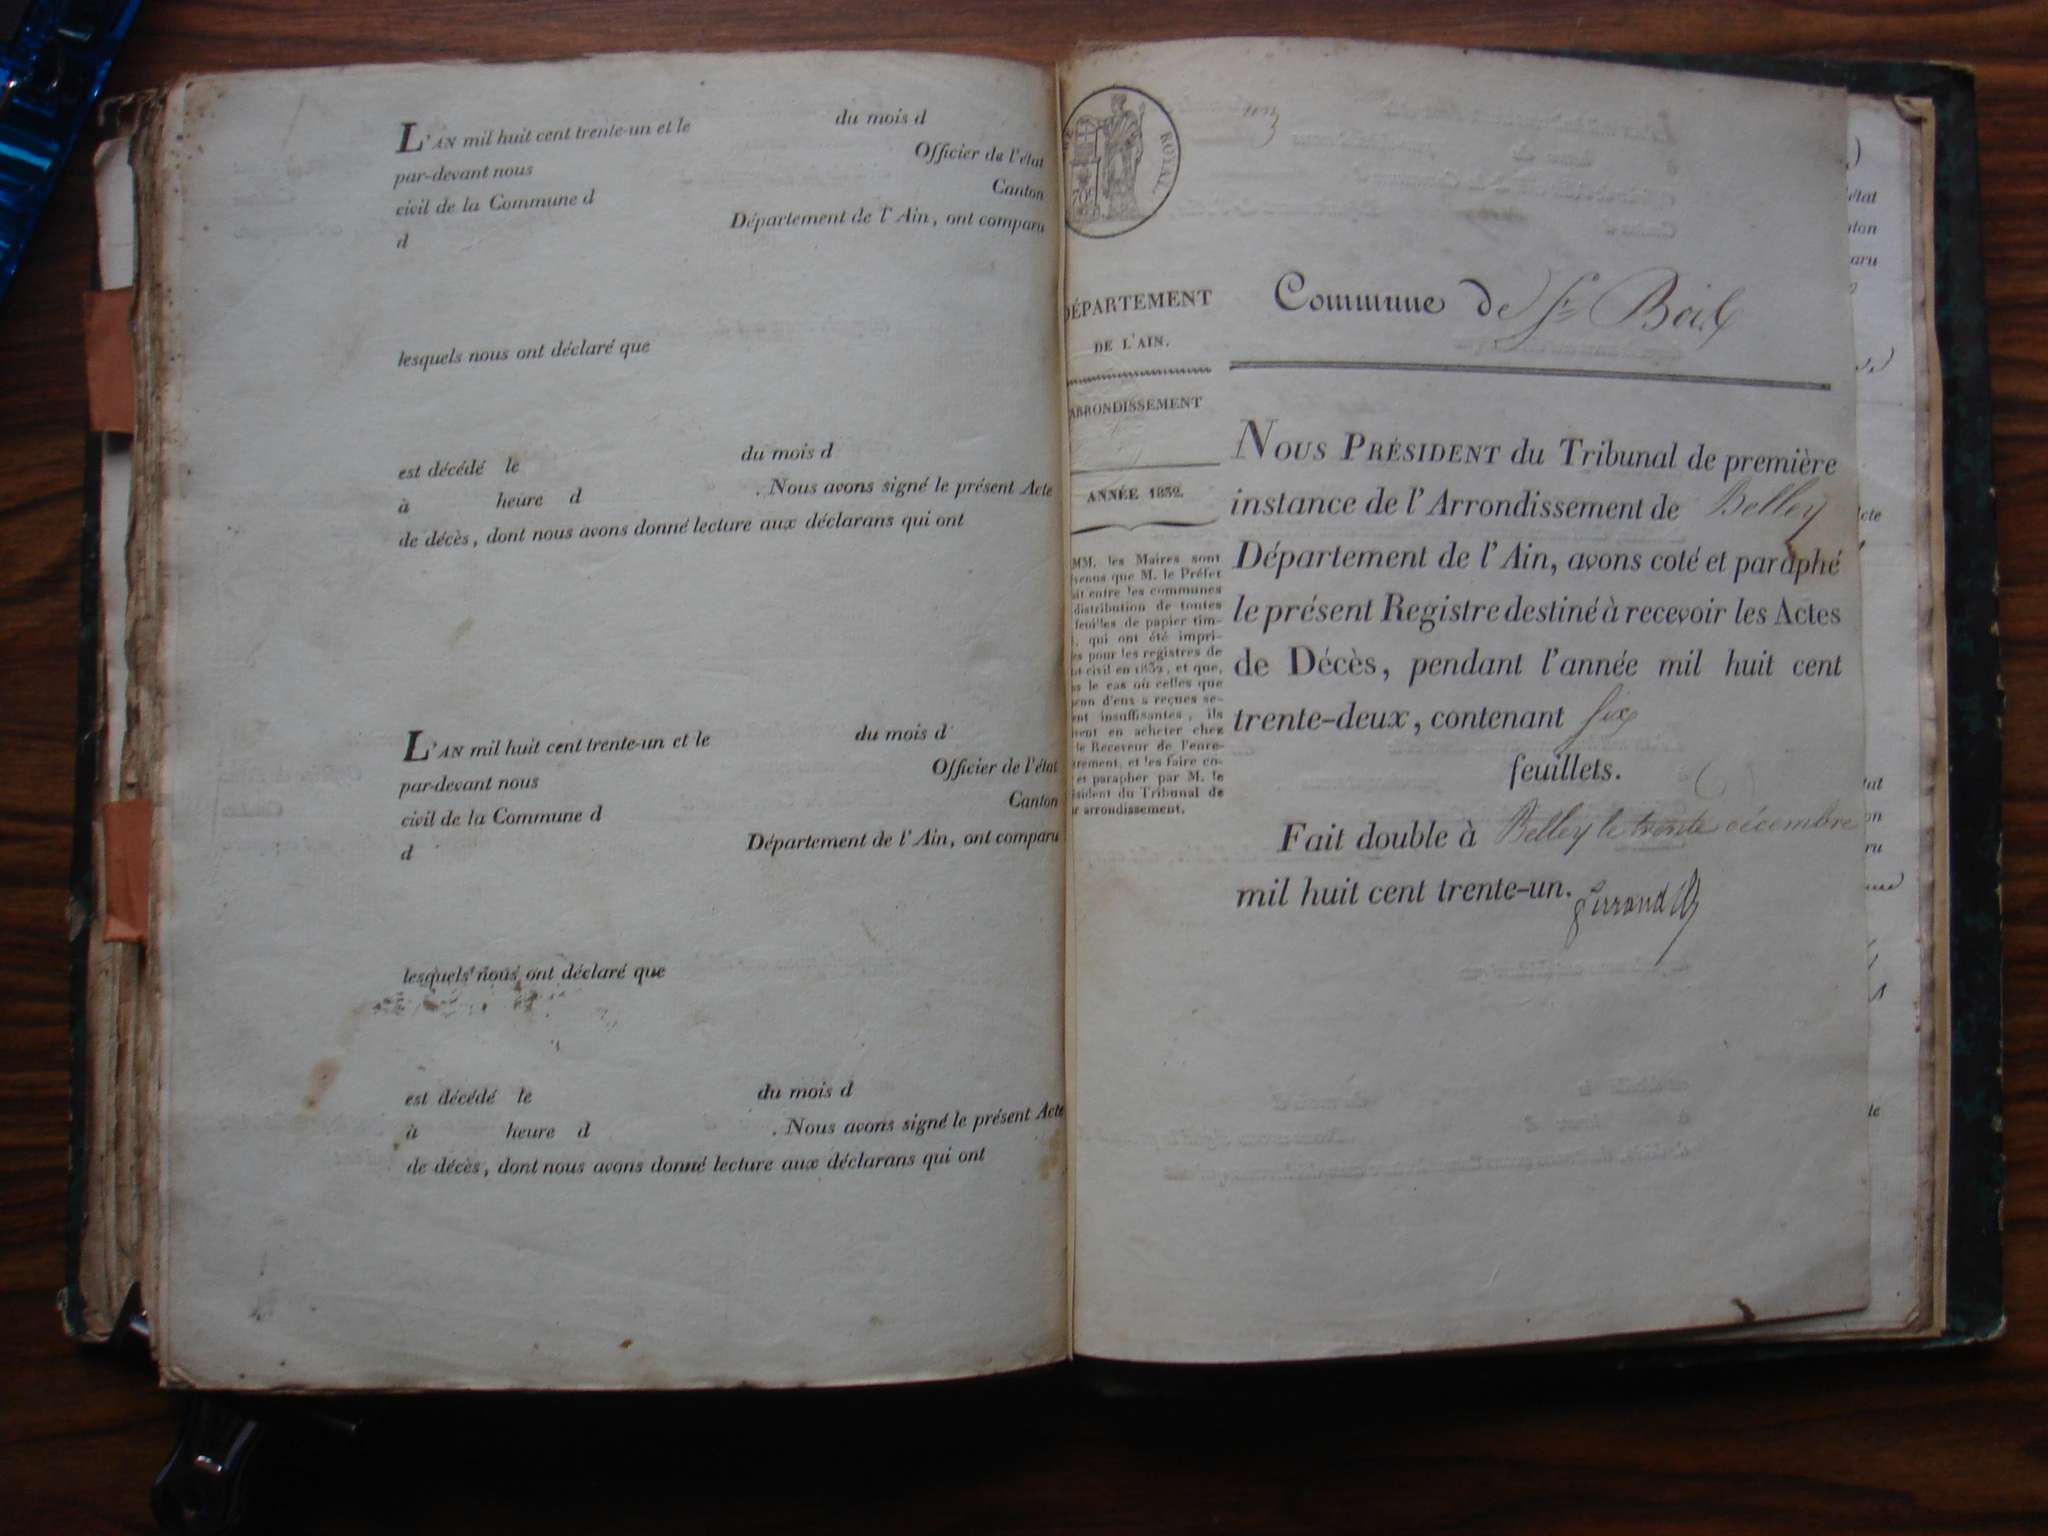 L'AN mil huit cent trente-un et le du mois d
par-devant nous Officier de l'état
civil de la Commune d Canton
d Département de l'Ain, ont comparu
lesquels nous ont déclaré que
est décédé le du mois d
à heure d . Nous avons signé le présent Acte
de décès, dont nous avons donné lecture aux déclarans qui ont
L'AN mil huit cent trente-un et le du mois d
par-devant nous Officier de l'état
civil de la Commune d Canton
d Département de l'Ain, ont comparu
lesquels nous ont déclaré que
est décédé le du mois d
à heure d . Nous avons signé le présent Acte
de décès, dont nous avons donné lecture aux déclarans qui ont
ROYAL.
DÉPARTEMENT
DE L'AIN.
ARRONDISSEMENT
ANNÉE 1832.
MM. les Maires sont
venus que M. le Préfet
ait entre les communes
distribution de toutes
feuilles de papier tim-
, qui ont été impri-
es pour les registres de
at civil en 1832, et que,
s le cas où celles que
cun d'eux a reçues se-
ent insuffisantes, ils
vent en acheter chez
le Receveur de l'enre-
trement, et les faire co-
et parapher par M. le
ésident du Tribunal de
r arrondissement.
Commune de St Boil
NOUS PRÉSIDENT du Tribunal de première
instance de l'Arrondissement de Belley
Département de l'Ain, avons coté et paraphé
le présent Registre destiné à recevoir les Actes
de Décès, pendant l'année mil huit cent
trente-deux, contenant six
feuillets.
Fait double à Belley le trente décembre
mil huit cent trente-un.
état
nton
aru
Acte
tat
on
ru
te